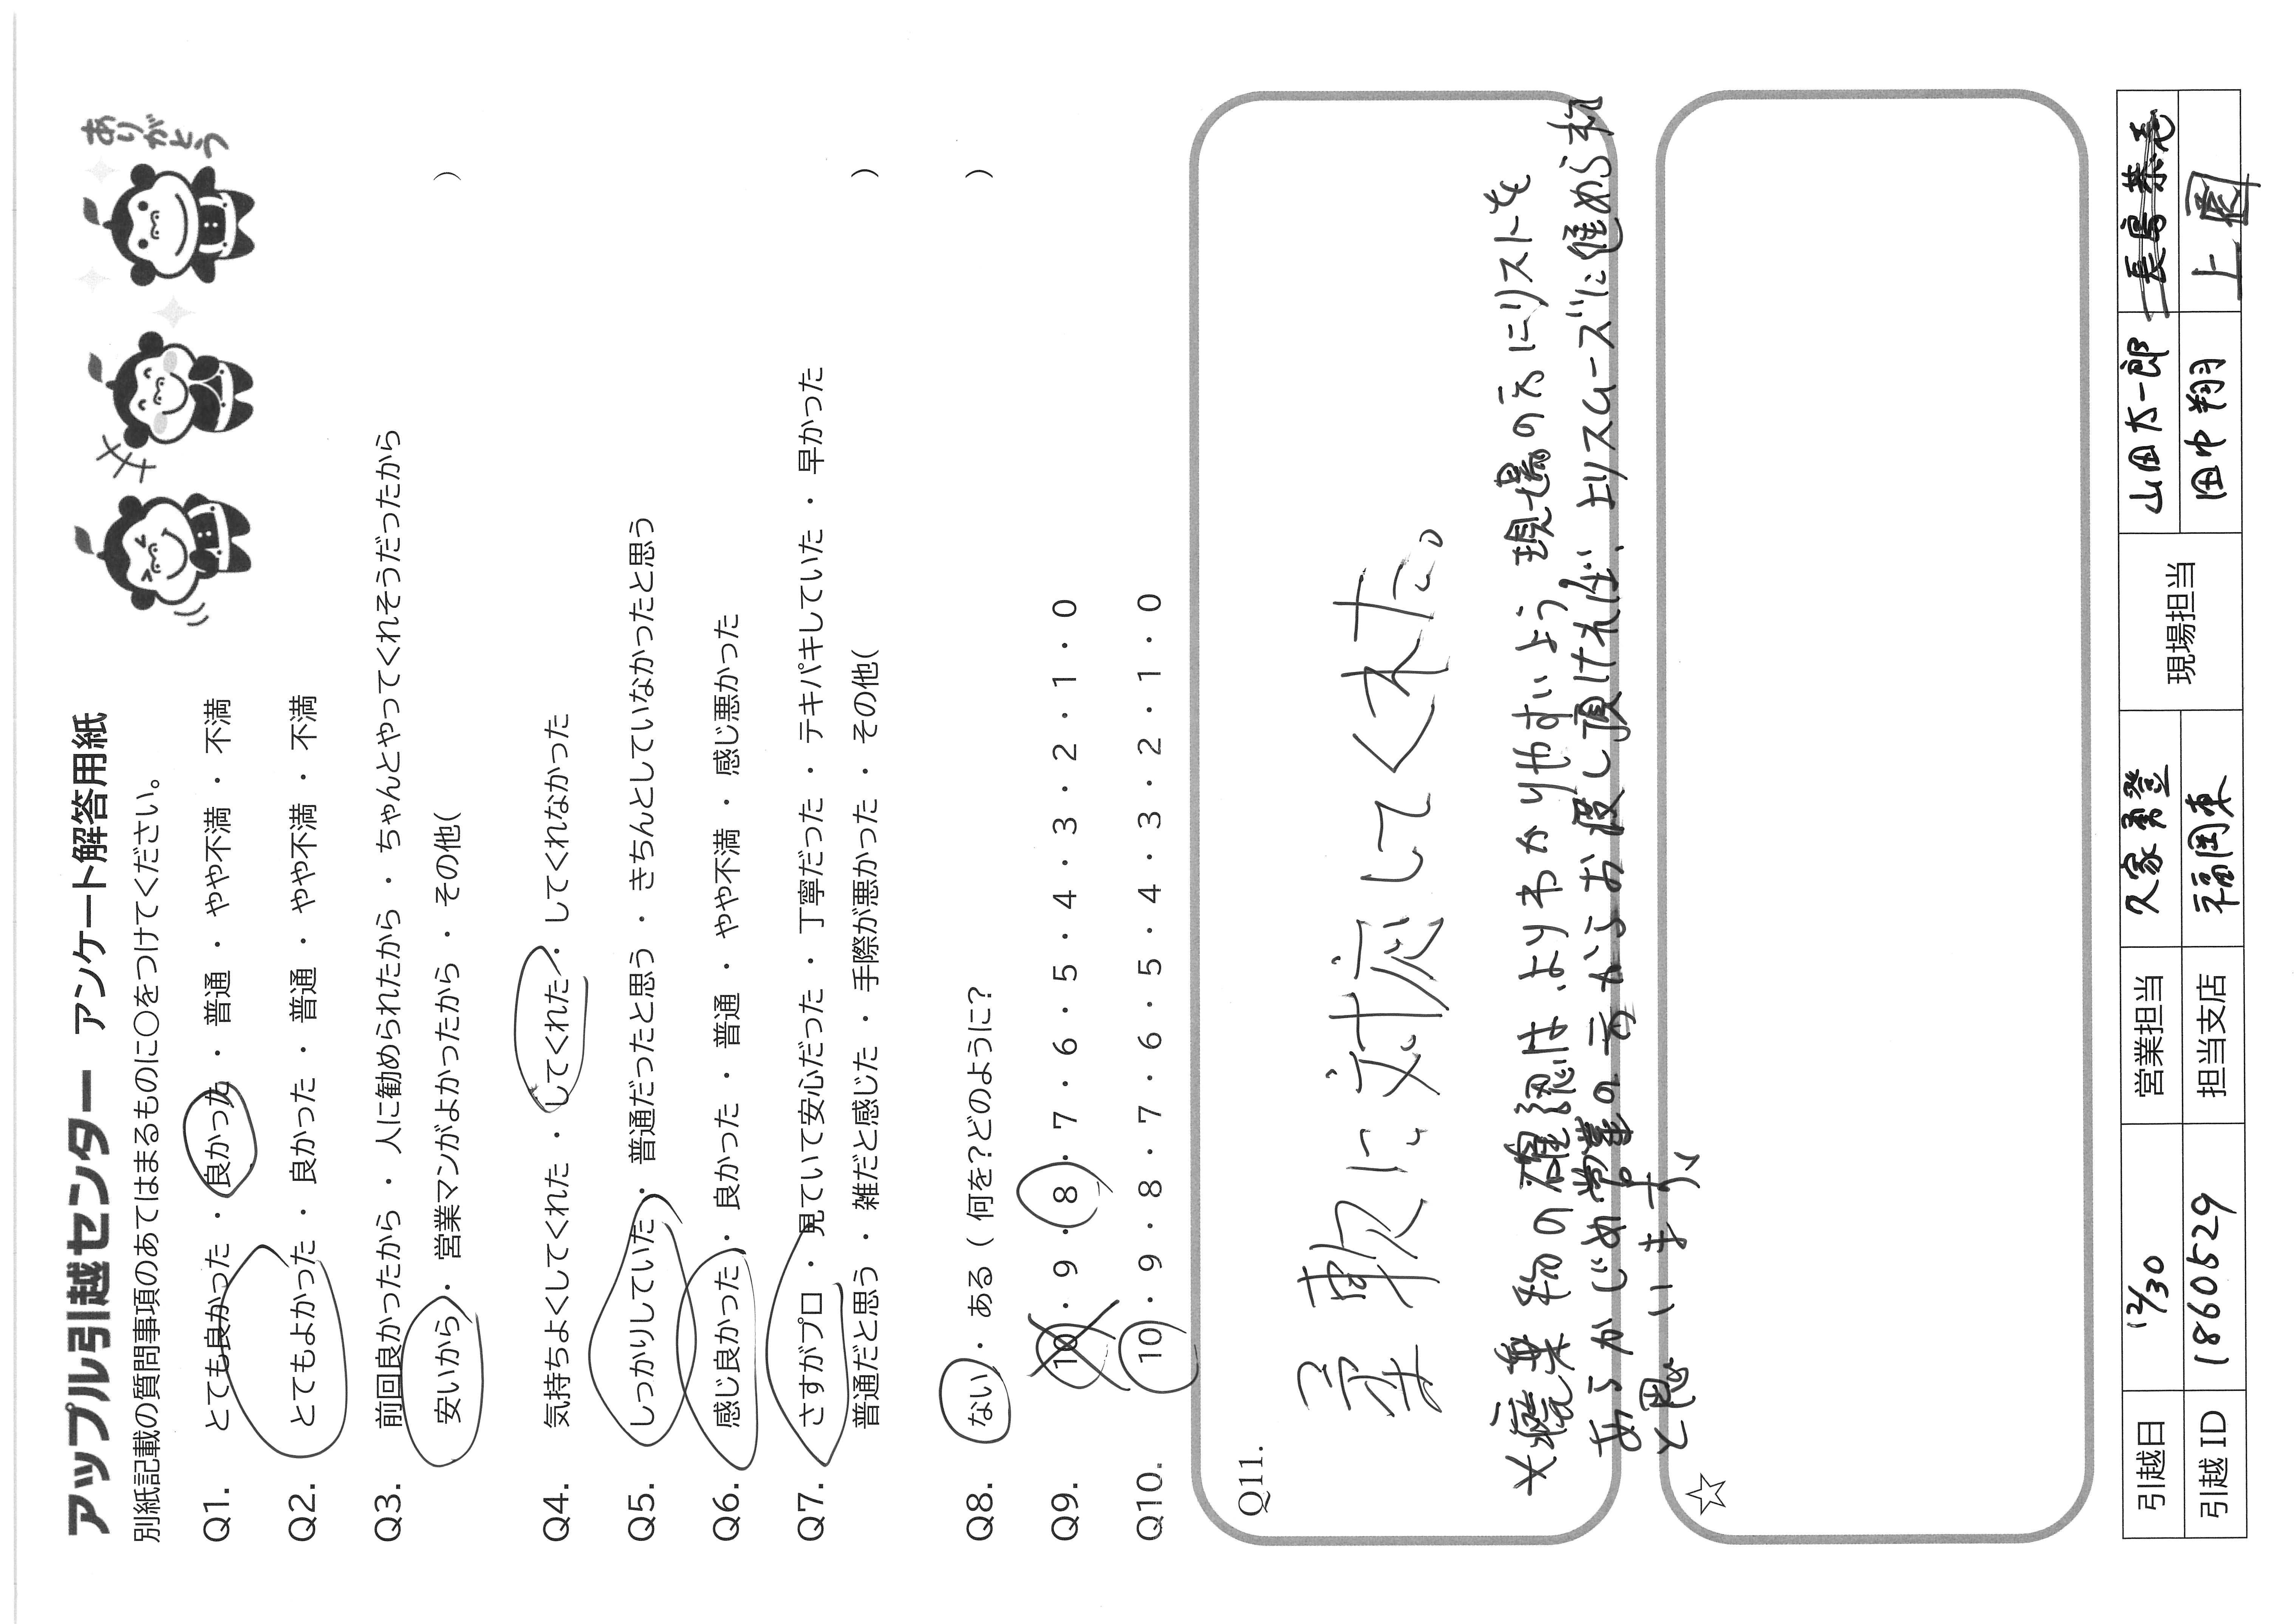 アップル引越センター アンケート解答用紙
別紙記載の質問事項のあてはまるものに〇をつけてください。
ありがとう
Q1. とても良かった ・ 良かった ・ 普通 ・ やや不満 ・ 不満
Q2. とてもよかった ・ 良かった ・ 普通 ・ やや不満 ・ 不満
Q3. 前回良かったから ・ 人に勧められたから ・ ちゃんとやってくれそうだったから
安いから ・ 営業マンがよかったから ・ その他( )
Q4. 気持ちよくしてくれた ・ してくれた ・ してくれなかった
Q5. しっかりしていた ・ 普通だったと思う ・ きちんとしていなかったと思う
Q6. 感じ良かった ・ 良かった ・ 普通 ・ やや不満 ・ 感じ悪かった
Q7. さすがプロ ・ 見ていて安心だった ・ 丁寧だった ・ テキパキしていた ・ 早かった
普通だと思う ・ 雑だと感じた ・ 手際が悪かった ・ その他( )
Q8. ない ・ ある ( 何を?どのように? )
Q9. 10 ・ 9 ・ 8 ・ 7 ・ 6 ・ 5 ・ 4 ・ 3 ・ 2 ・ 1 ・ 0
Q10. 10 ・ 9 ・ 8 ・ 7 ・ 6 ・ 5 ・ 4 ・ 3 ・ 2 ・ 1 ・ 0
Q11.
柔軟に対応してくれた。
*廃棄物の確認は、よりわかりやすいよう、現場の方にリストを
あらかじめ営業の方からお渡し頂ければ、よりスムーズに進められ
と思います。
☆
引越日 12/30 営業担当 久家 勇登 現場担当 山田大一郎
引越ID 1860529 担当支店 福岡東 田中 翔 上園